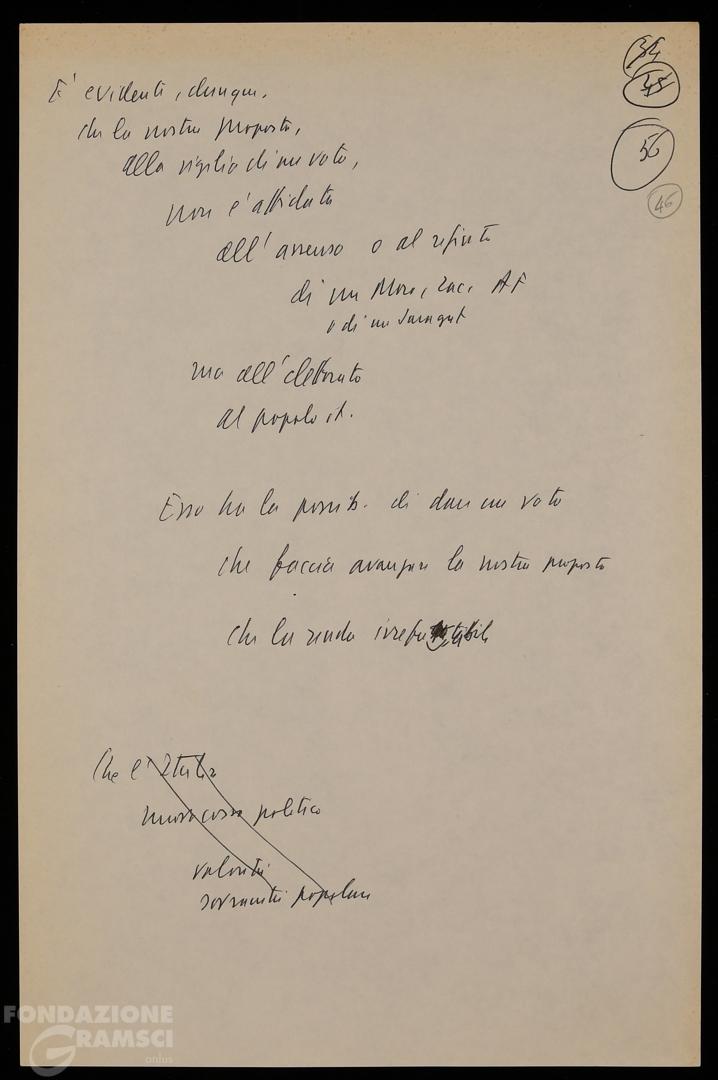 34
45
56
46
E' evidente, dunque,
che la nostra proposta,
alla vigilia di un voto,
non è affidata
all'assenso o al rifiuto
di un Moro, Zac, AF
o di un Saragat
ma all'elettorato
al popolo it.
Esso ha la possib. di dare un voto
che faccia avanzare la nostra proposta
che la renda
Che l'Italia
nuovo corso politico
volontà
sovranità popolare
FONDAZIONE
GRAMSCI
onlus